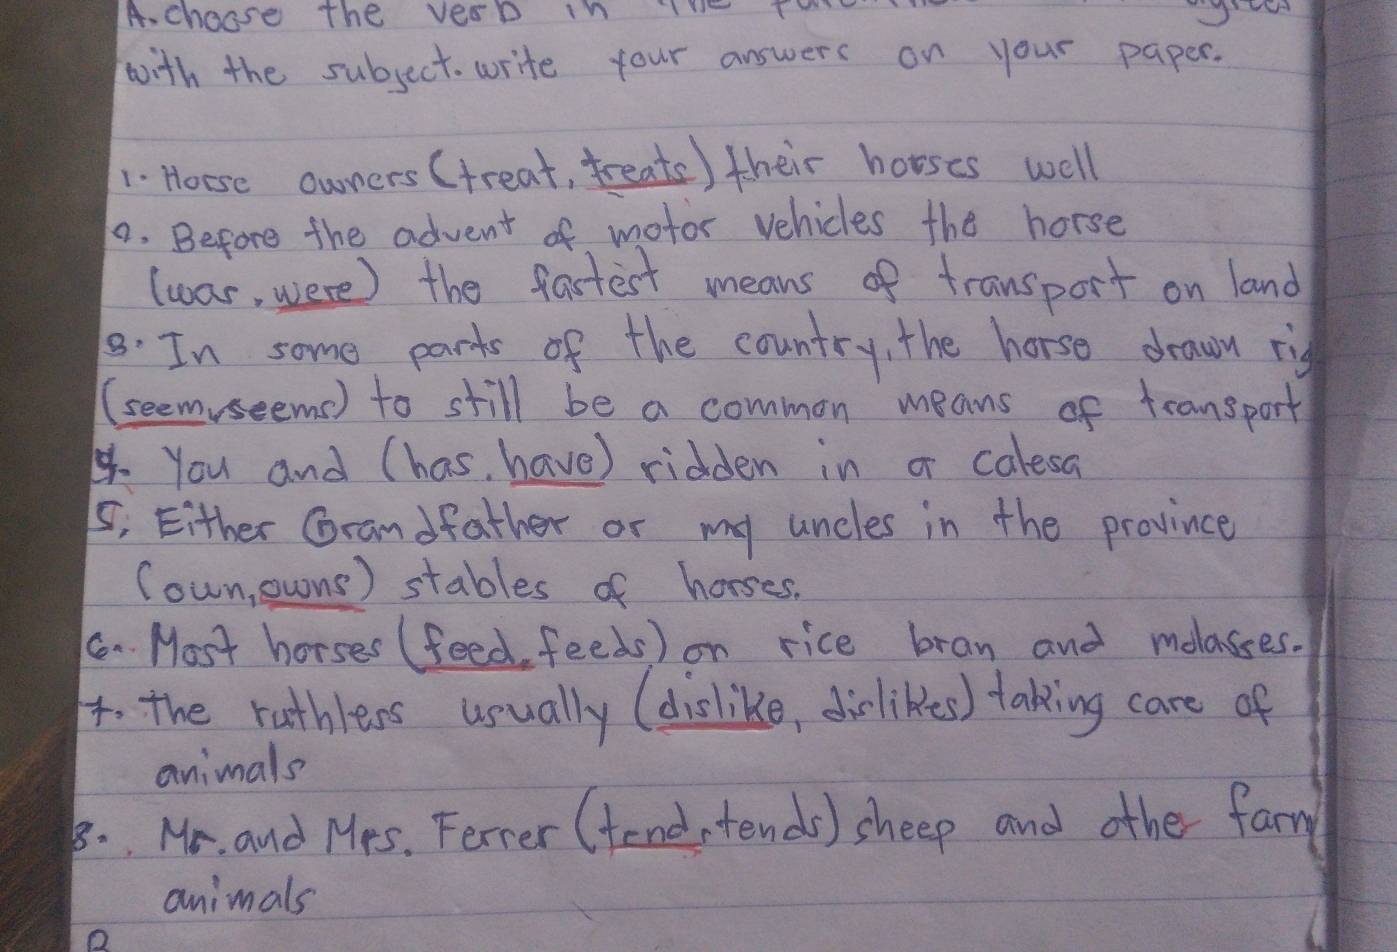 A. choose the verb in the
with the subject. write your answers on your paper.
1. Horse owners (treat, treats) their horses well
2. Before the advent of motor vehicles the horse
(was, were) the fastest means of transport on land
3. In some parts of the country, the horse drawn rig
(seem, seems) to still be a common means of transport
4. You and (has, have) ridden in a calesa
5. Either Grandfather or my uncles in the province
(own, owns) stables of horses.
6. Most horses (feed, feeds) on rice bran and molasses.
7. The ruthless usually (dislike, dislikes) taking care of
animals
8. Mr. and Mrs. Ferrer (tend, tends) sheep and other farm
animals